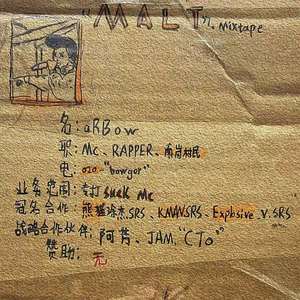 "MALT", Mixtape
名:aRBow
职:Mc、RAPPER、南岸村民
电:020-"bowgor"
业务范围:专打 Suck Mc
冠名合作:熊猫涂杰.SRS、KMAN.SRS、Explosive.V.SRS
战略合作伙伴:阿芳、JAM、"CTo"
赞助:无